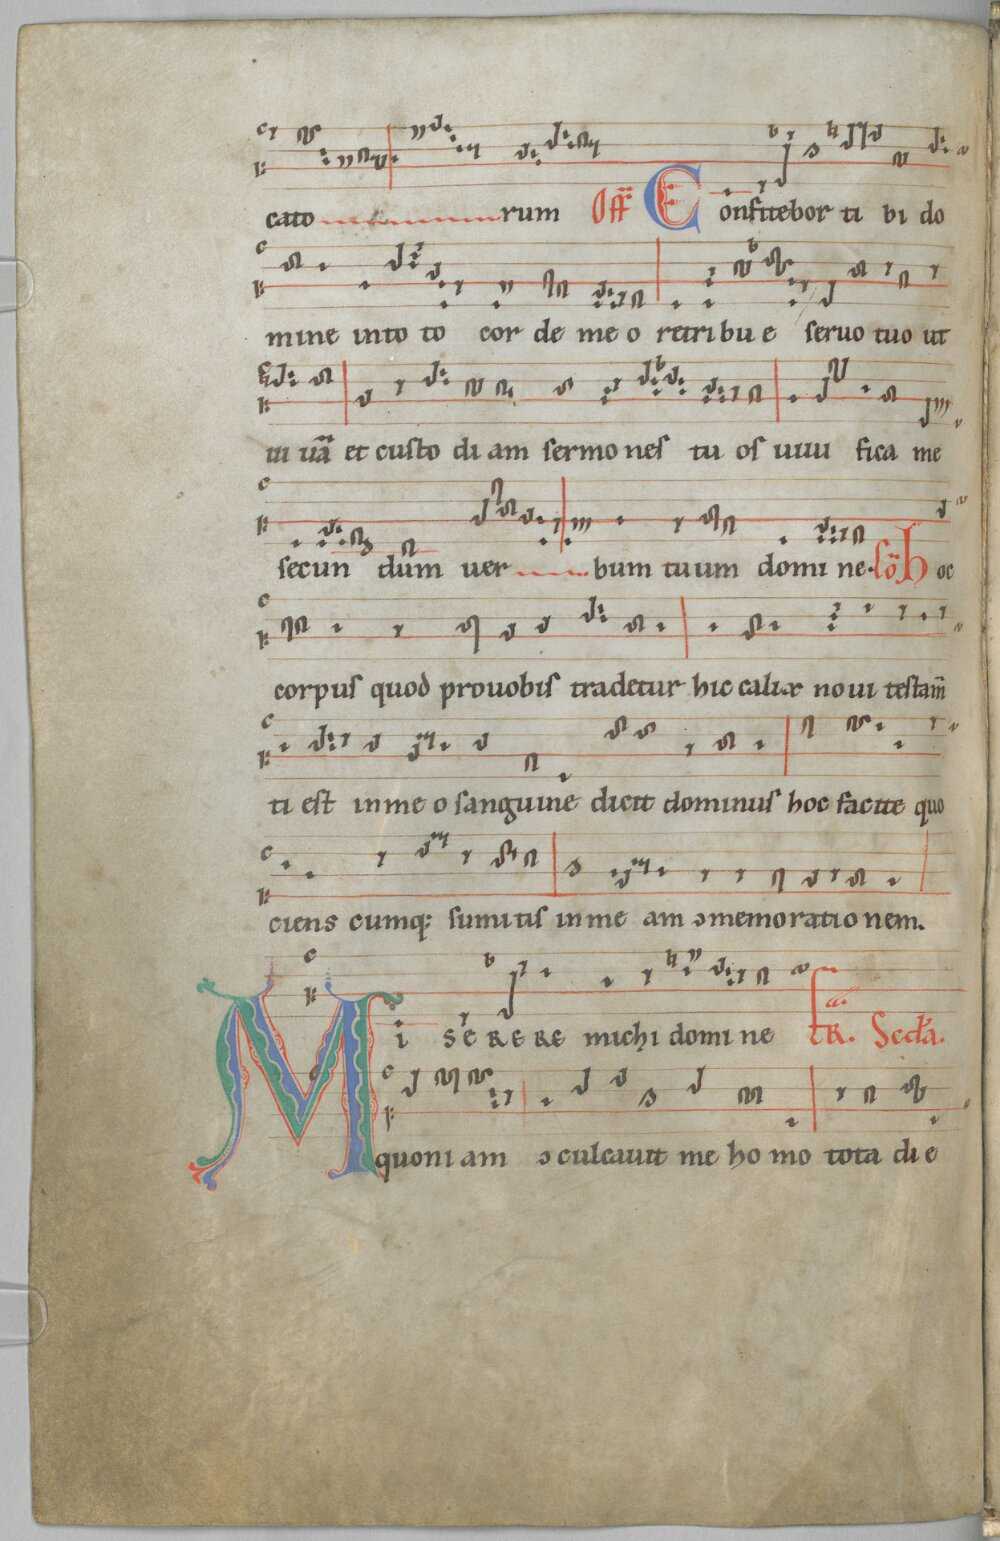 cato rum Off Confitebor ti bi do
mine in to to cor de me o retribu e seruo tuo ut
ui uā et custo di am sermo nes tu os uiui fica me
secun dum uer bum tuum domi ne. Cō hoc
corpus quod pro uobis tradetur hic calix noui testam̄
ti est in me o sanguine dicit dominus hoc facite quo
ciens cumq; sumitis in me am ɔmemoratio nem.
MiSERERE michi domine FR. Scda.
quoni am ɔculcauit me ho mo tota di e